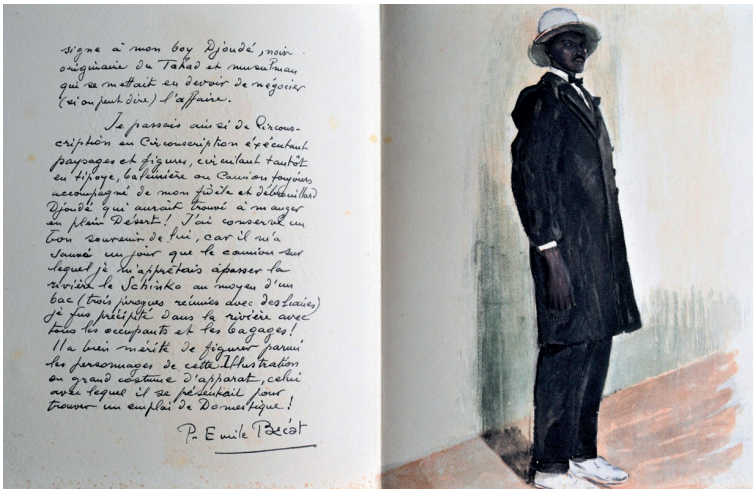 signe à mon boy Djoudé, noir
originaire du Tchad et musulman
qui se mettait en devoir de négocier
(si on peut dire) l'affaire.
Je passais ainsi de Circons-
cription en Circonscription éxécutant
paysages et figures, circulant tantôt
en tipoye, baleinière ou Camion toujours
accompagné de mon fidèle et débrouillard
Djoudé qui aurait trouvé à manger
en plein Désert! J'ai conservé un
bon souvenir de lui, car il m'a
sauvé un jour que le camion sur
lequel je m'apprêtais à passer la
rivière le Schinko au moyen d'un
bac (trois pirogues réunies avec des Lianes)
je fus précipité dans la rivière avec
tous les occupants et les bagages!
Il a bien mérité de figurer parmi
les personnages de cette Illustration
en grand costume d'apparat, celui
avec lequel il se présentait pour
trouver un emploi de Domestique!
P. Emile Bécat